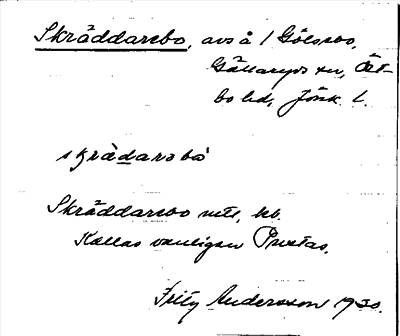 Skräddarebo, avs å / Gölsbo,
Gällaryds sn, Öst-
bo hd, Jönk. l.
skrädarəbo
Skräddarebo mtl, hb.
Kallas vanligen
Fritz Andersson 1930.